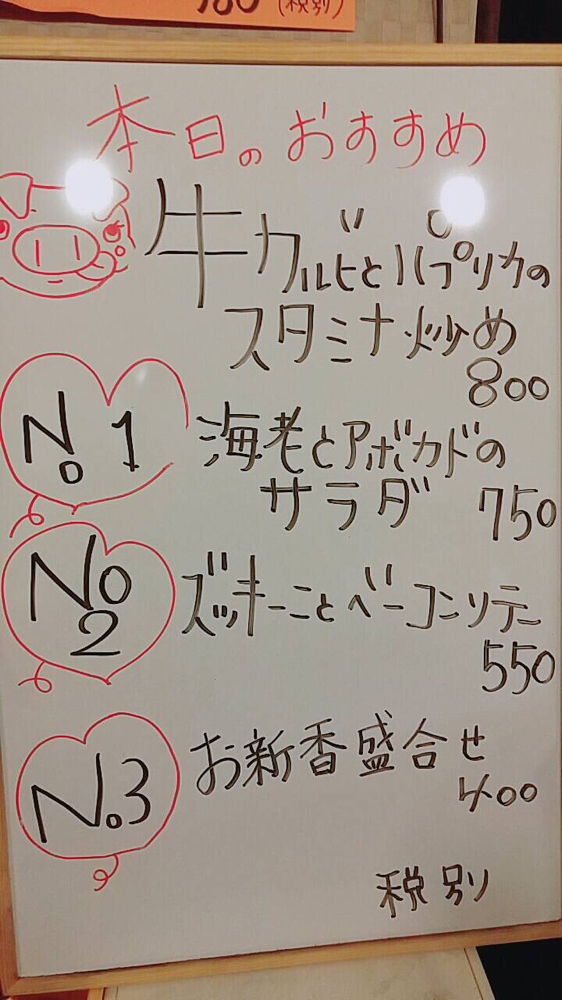 980(税別)
本日のおすすめ
牛カルビとパプリカの
スタミナ炒め
800
No1
海老とアボカドの
サラダ 750
No
2
ズッキーニとベーコンソテー
550
No.3
お新香盛合せ
400
税別